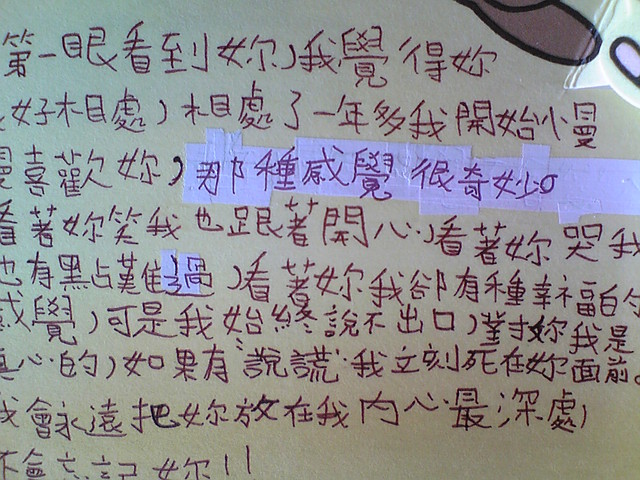 第一眼看到妳,我覺得妳
好相處,相處了一年多我開始慢
慢喜歡妳,那種感覺很奇妙。
看著妳笑我也跟著開心,看著妳哭我
也有點難過,看著妳我卻有種幸福的
感覺,可是我始終說不出口,對妳我是
真心的,如果有說謊我立刻死在妳面前。
我會永遠把妳放在我內心最深處,
不會忘記妳!!